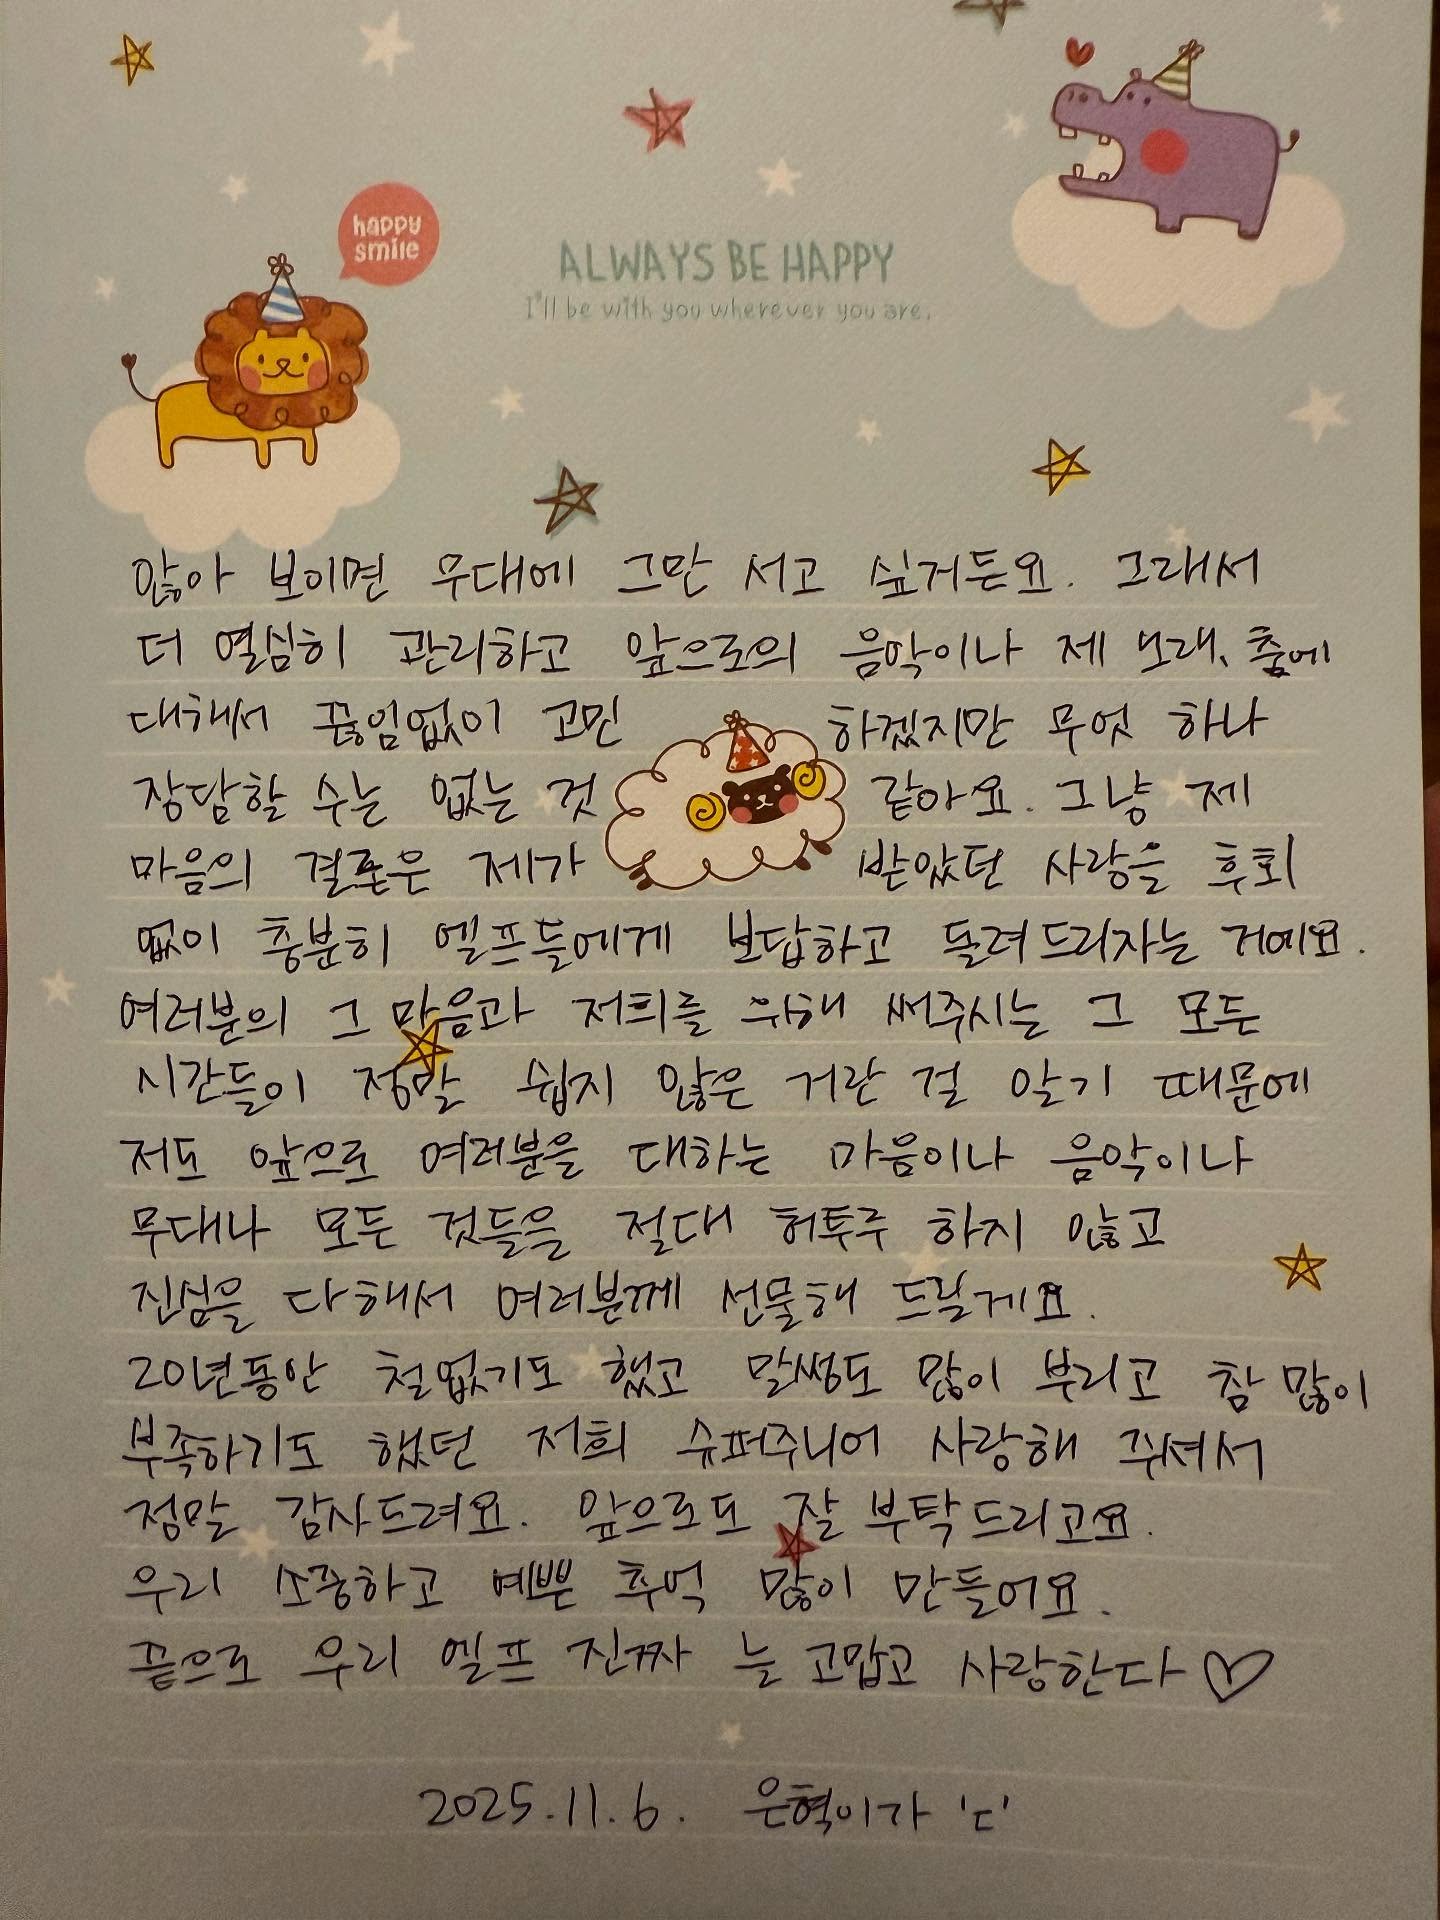 happy
smile
ALWAYS BE HAPPY
I'll be with you wherever you are.
않아 보이면 무대에 그만 서고 싶거든요. 그래서
더 열심히 관리하고 앞으로의 음악이나 제 노래, 춤에
대해서 끊임없이 고민 하겠지만 무엇 하나
장담할 수는 없는 것 같아요. 그냥 제
마음의 결론은 제가 받았던 사랑을 후회
없이 충분히 엘프들에게 보답하고 돌려드리자는 거예요.
여러분의 그 마음과 저희를 위해 써주시는 그 모든
시간들이 정말 쉽지 않은 거란 걸 알기 때문에
저도 앞으로 여러분을 대하는 마음이나 음악이나
무대나 모든 것들을 절대 허투루 하지 않고
진심을 다해서 여러분께 선물해 드릴게요.
20년동안 철없기도 했고 말썽도 많이 부리고 참 많이
부족하기도 했던 저희 슈퍼주니어 사랑해 주셔서
정말 감사드려요. 앞으로도 잘 부탁드리고요.
우리 소중하고 예쁜 추억 많이 만들어요.
끝으로 우리 엘프 진짜 늘 고맙고 사랑한다♡
2025.11.6. 은혁이가 'ㄷ'